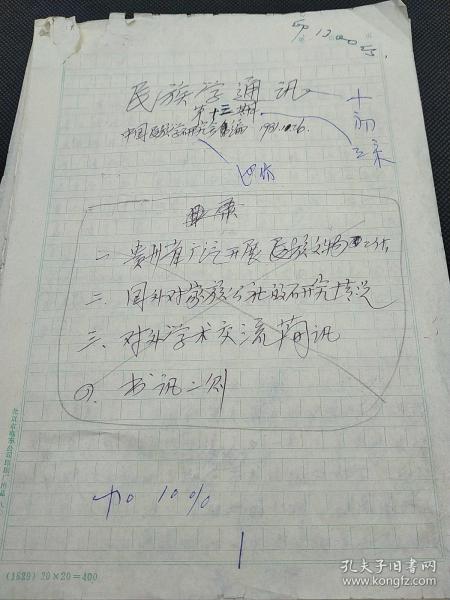 印1200份
民族学通讯
第十三期
中国民族学研究会编 1981.10.26.
十初
五宋
四仿
目录
一、贵州省广泛开展民族文物工作
二、国外对家族公社的研究情况
三、对外学术交流简讯
四、书讯二则
加10%
1
(1629) 20×20=400
孔夫子旧书网
www.kongfz.com